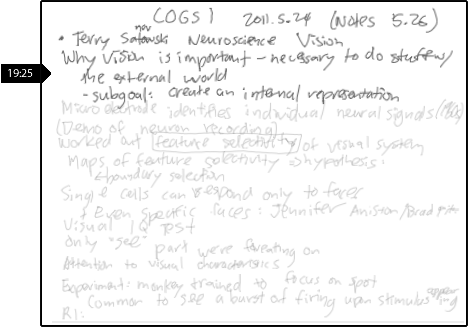 COGS 1 2011.5.24 (Notes 5.26)
• Terry Neuroscience Vision
Why Vision is important - necessary to do stuff w/
the external world
19:25
- subgoal: create an internal representation
Microelectrode identifies individual neural signals
(Demo of neuron recording)
Worked out feature selectivity of visual system
Maps of feature selectivity → hypothesis:
boundary selection
Single cells can respond only to faces
Even specific faces: Jennifer Aniston/Brad Pitt
Visual IQ test
Only "see" part were focusing on
Attention to visual characteristics
Experiment: monkey trained to focus on spot
Common to see a burst of firing upon stimulus appearing
R1: